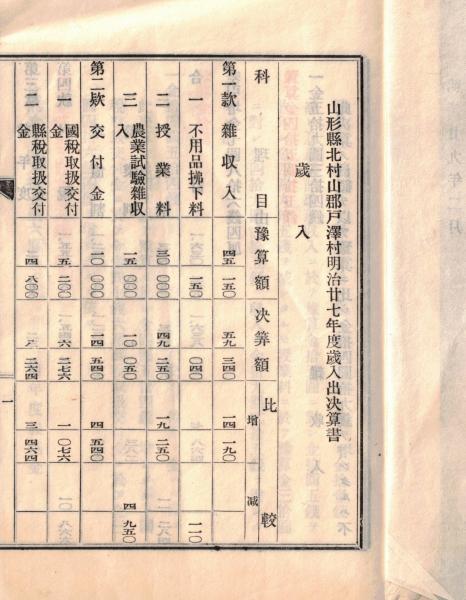 山形縣北村山郡戸澤村明治廿七年度歳入出決算書
歳入
科目 豫算額 決算額 比較 増 減
第一款 雜収入 四五 一五〇 五九 三四〇 一四 一九〇
一 不用品拂下料 一五〇 〇四〇 一一〇
二 授業料 三〇 〇〇〇 四九 二五〇 一九 二五〇
三 農業試驗雜収入 一五 〇〇〇 一〇 〇五〇 四 九五〇
第二欵 交付金 一〇 〇〇〇 一四 五四〇 四 五四〇
一 國税取扱交付金 五 二〇〇 六 二七六 一 〇七六
二 縣税取扱交付金 四 八〇〇 八 二六四 三 四六四
一